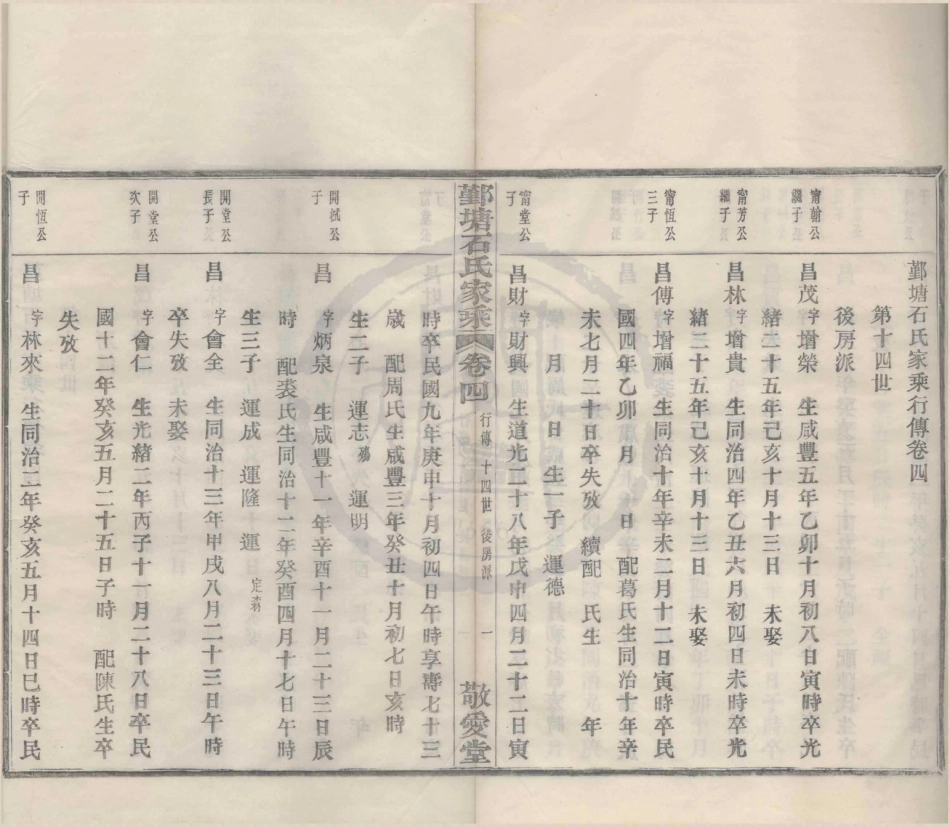 鄞塘石氏家乘行傳卷四
第十四世
後房派
甯翰公
繼子
昌茂字增榮　生咸豐五年乙卯十月初八日寅時卒光
緒二十五年己亥十月十三日　未娶
甯芳公
繼子
昌林字增貴　生同治四年乙丑六月初四日未時卒光
緒二十五年己亥十月十三日　未娶
甯恆公
三子
昌傳字增福　生同治十年辛未二月十二日寅時卒民
國四年乙卯　月　日　配葛氏生同治十年辛
未七月二十日卒失攷　續配　氏生　年
月　日　生一子　運德
甯堂公
子
昌財字財興　生道光二十八年戊申四月二十二日寅
鄞塘石氏家乘　卷四　行傳　十四世　後房派　一　敬愛堂
時卒民國九年庚申十月初四日午時享壽七十三
歲　配周氏生咸豐三年癸丑十月初七日亥時
生二子　運志殤　運明
開栻公
子
昌　字炳泉　生咸豐十一年辛酉十一月二十三日辰
時　配裘氏生同治十二年癸酉四月十七日午時
生三子　運成　運隆　運定殤
開堂公
長子
昌　字會全　生同治十三年甲戌八月二十三日午時
卒失攷　未娶
開堂公
次子
昌　字會仁　生光緒二年丙子十一月二十八日卒民
國十二年癸亥五月二十五日子時　配陳氏生卒
失攷
開恆公
子
昌　字林來　生同治二年癸亥五月十四日巳時卒民